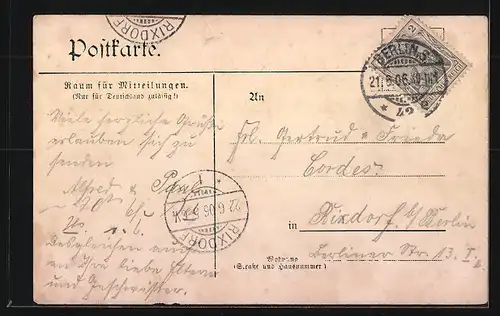 RIXDORF
Postkarte.
BERLIN S.
21.6.06.
42
Raum für Mitteilungen.
(Nur für Deutschland zulässig!)
An
Viele herzliche Grüße
erlauben sich zu
senden
Alfred & Paul
Frl. Gertrud & Frieda
Cordes.
in Rixdorf b/Berlin
Berliner Str. 13. I
RIXDORF
22.6.06
1
Desgleichen auch
an Ihre liebe Eltern
und Geschwister.
Wohnung
(Straße und Hausnummer)